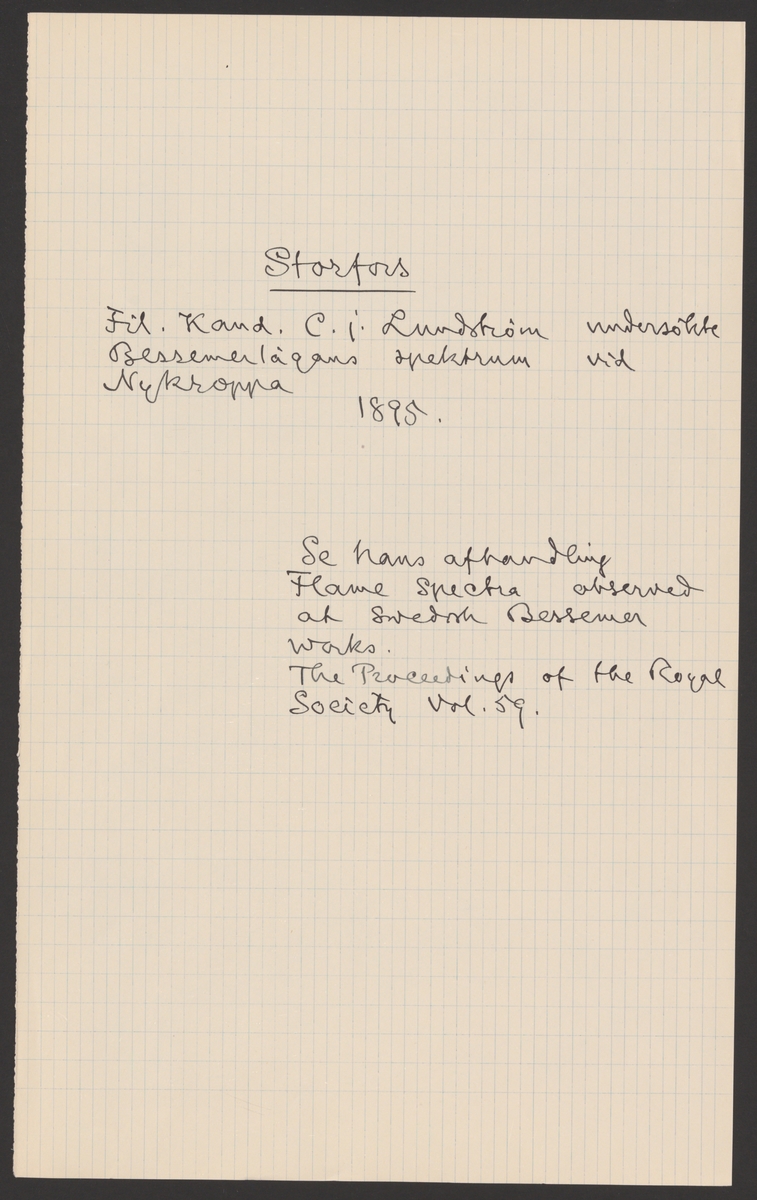 Storfors
Fil. Kand. C. j. Lundström undersökte
Bessemerlågans spektrum vid
Nykroppa
1895.
Se hans afhandling
Flame Spectra observed
at Swedish Bessemer
works.
The Proceedings of the Royal
Society Vol. 59.